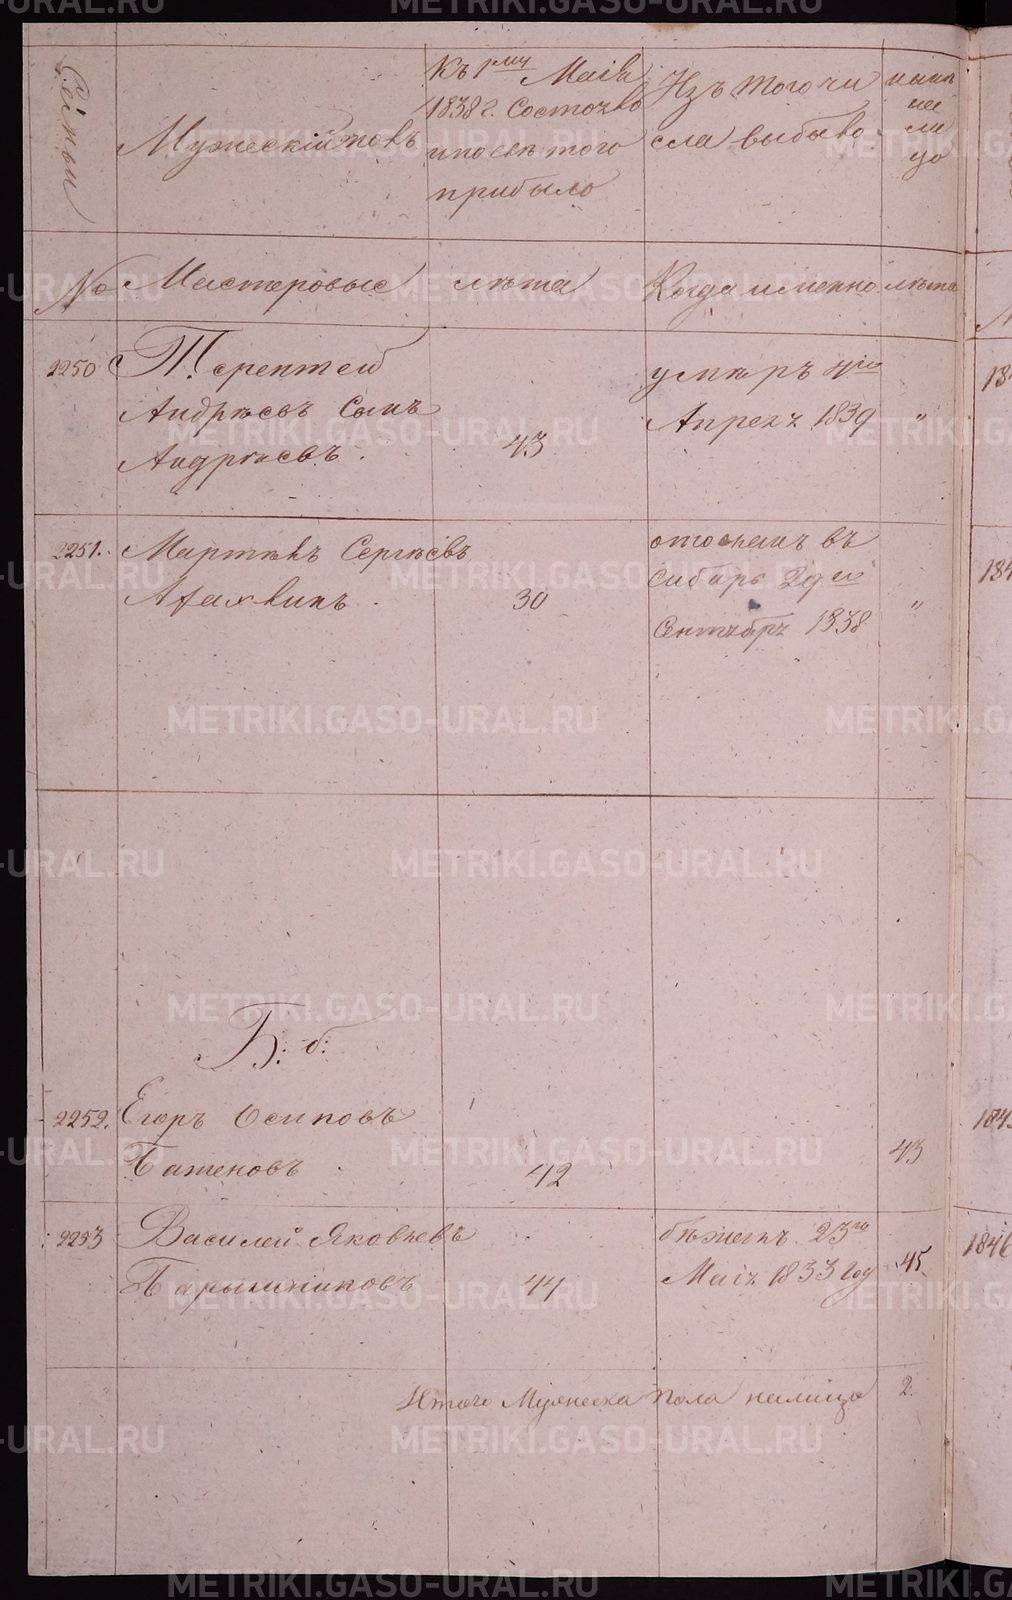 Семьи
Мужескій полъ
Къ 1му Маія
1838 г. состояло
и после того
прибыло
Изъ того чи
сла выбыло
ныне
на
ли
цо
№
Мастеровые
лѣта
Когда именно
лѣта
2250
Терентей
Андреевъ сынъ
Андреевъ.
43
умеръ 4го
Апреля 1839
"
2251.
Мартинъ Сергѣевъ
30
отосланъ въ
сибирь 29го
Сентября 1838
"
Б: б:
2252.
Егоръ Осиповъ
Баженовъ
42
43
2253
Василей Яковлевъ
Барышниковъ
44
бѣжалъ 23го
Маія 1833 год
45
Итого Мужеска пола налицо
2.
184
1846
METRIKI.GASO-URAL.RU